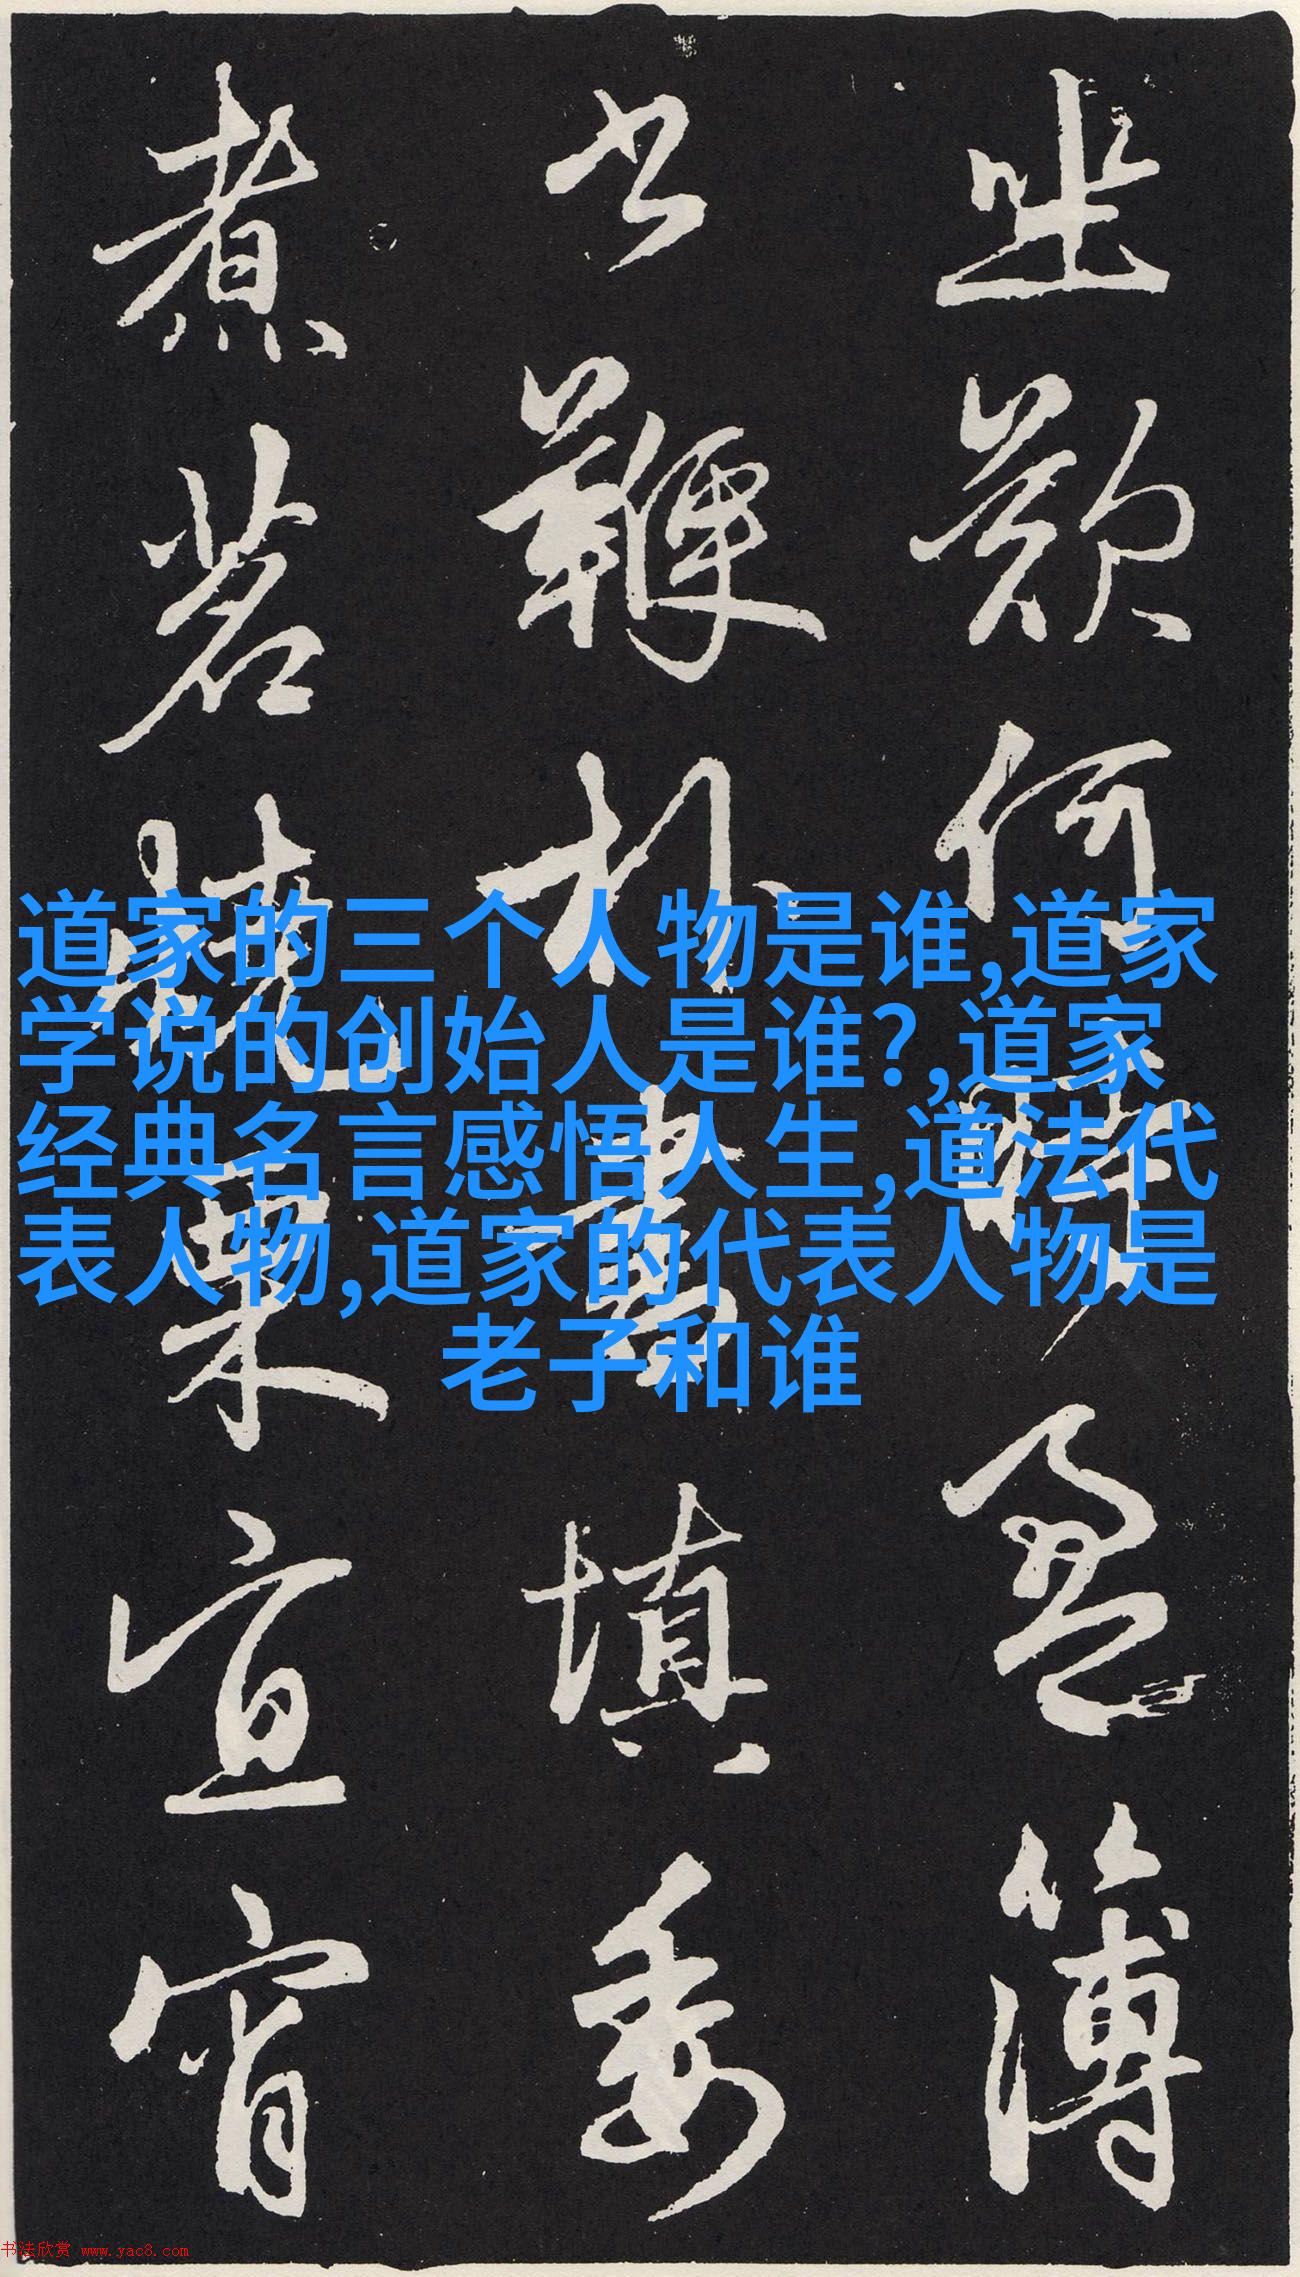 道家的三个人物是谁,道家
学说的创始人是谁?,道家
经典名言感悟人生,道法代
表人物,道家的代表人物是
老子和谁
何
盈
簿
填
委
煮
茗
烧
栗
宜
宵
书法欣赏 www.yac8.com